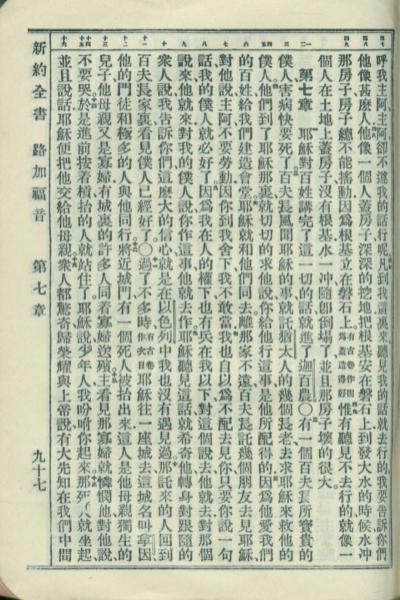 呼我主阿主阿卻不遵我的話行呢凡到我這裏來聽見我的話就去行的我要告訴你們
他像甚麼人他像一個人蓋房子深深的挖地把根基安在磐石上到發大水的時候水冲
那房子房子總不能搖動因爲根基立在磐石上惟有聽見不去行的就像一
個人在土地上蓋房子沒有根基水一冲隨卽倒塌了並且那房子壞的很大
第七章 耶穌對百姓講完了這一切的話就進了迦百農○有一個百夫長所寶貴的
僕人害病快要死了百夫長風聞耶穌的事就託猶太人的幾個長老去求耶穌來救他的
僕人他們到了耶穌那裏就切切的求他說你給他行這事是他所配得的因爲他愛我們
的百姓給我們建造會堂耶穌就和他們同去離那家不遠百夫長託幾個朋友去見耶穌
對他說主阿不要勞動因你到我舍下我不敢當我也自以爲不配去見你只要你說一句
話我的僕人就必好了因爲我在人的權下也有兵在我以下對這個說去他就去對那個
說來他就來對我的僕人說你作這事他就去作耶穌聽見這話就希奇他轉身對跟隨的
衆人說我告訴你們這麼大的信心就是在以色列中我也沒有遇見過那託來的人回到
百夫長家裏看見僕人已經好了○過了不多時耶穌往一座城去這城名叫拿因
他的門徒和極多的人與他同行將近城門有一個死人被抬出來這人是他母親獨生的
兒子他母親又是寡婦有城裏的許多人同着寡婦送殯主看見那寡婦就憐憫他對他說
不要哭於是進前按着槓抬的人就站住了耶穌說少年人我吩咐你起來那死人就坐起
並且說話耶穌便把他交給他母親衆人都驚奇歸榮耀與上帝說有大先知在我們中間
新約全書 路加福音 第七章 九十七